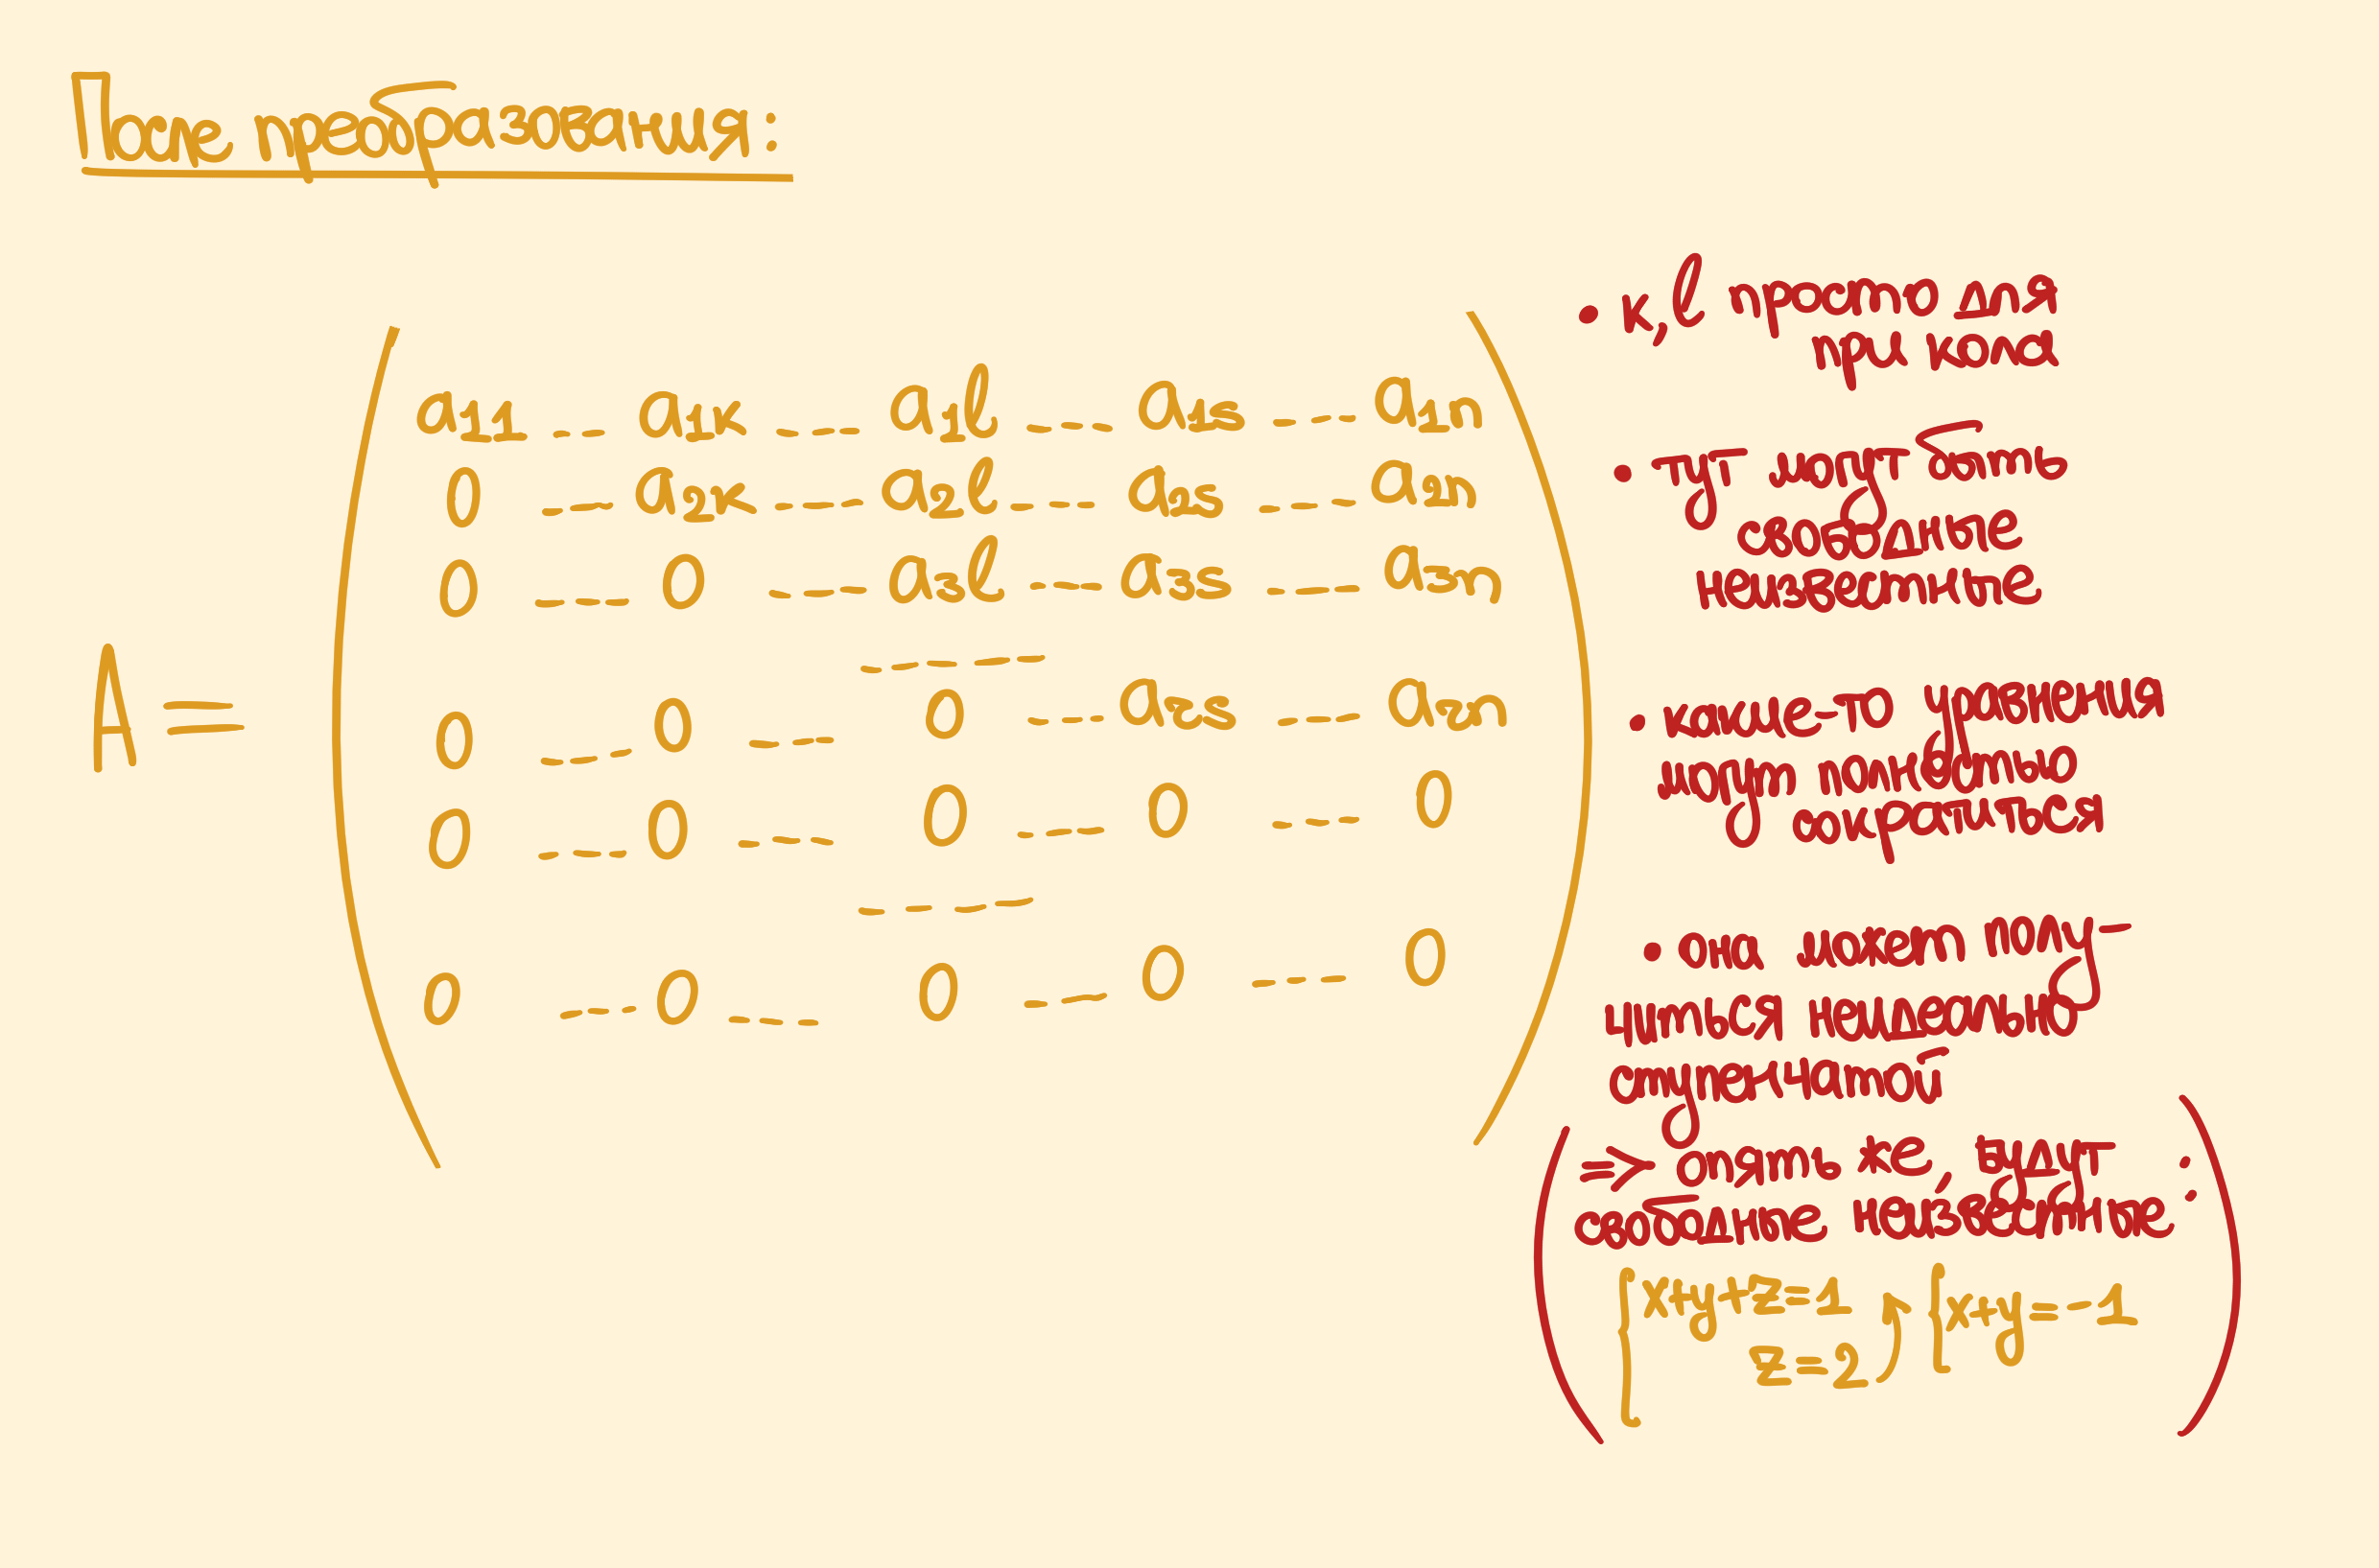 После преобразования:
A =
a11 --- a1k --- a1l --- a1s --- a1n
0 --- a2k --- a2l --- a2s --- a2n
0 --- 0 --- a3l --- a3s --- a3n
-----
0 --- 0 --- 0 --- ars --- arn
0 --- 0 --- 0 --- 0 --- 0
----
0 --- 0 --- 0 --- 0 --- 0
• k, l просто для
прикола
• тут могут быть
свободные
неизвестные
• какие-то уравнения
могут полностью
сократиться
• она может полу-
читься неидеально
ступенчатой
=> опять же, будут
свободные неизвестные:
x+y+z=1
z=2
x+y=-1